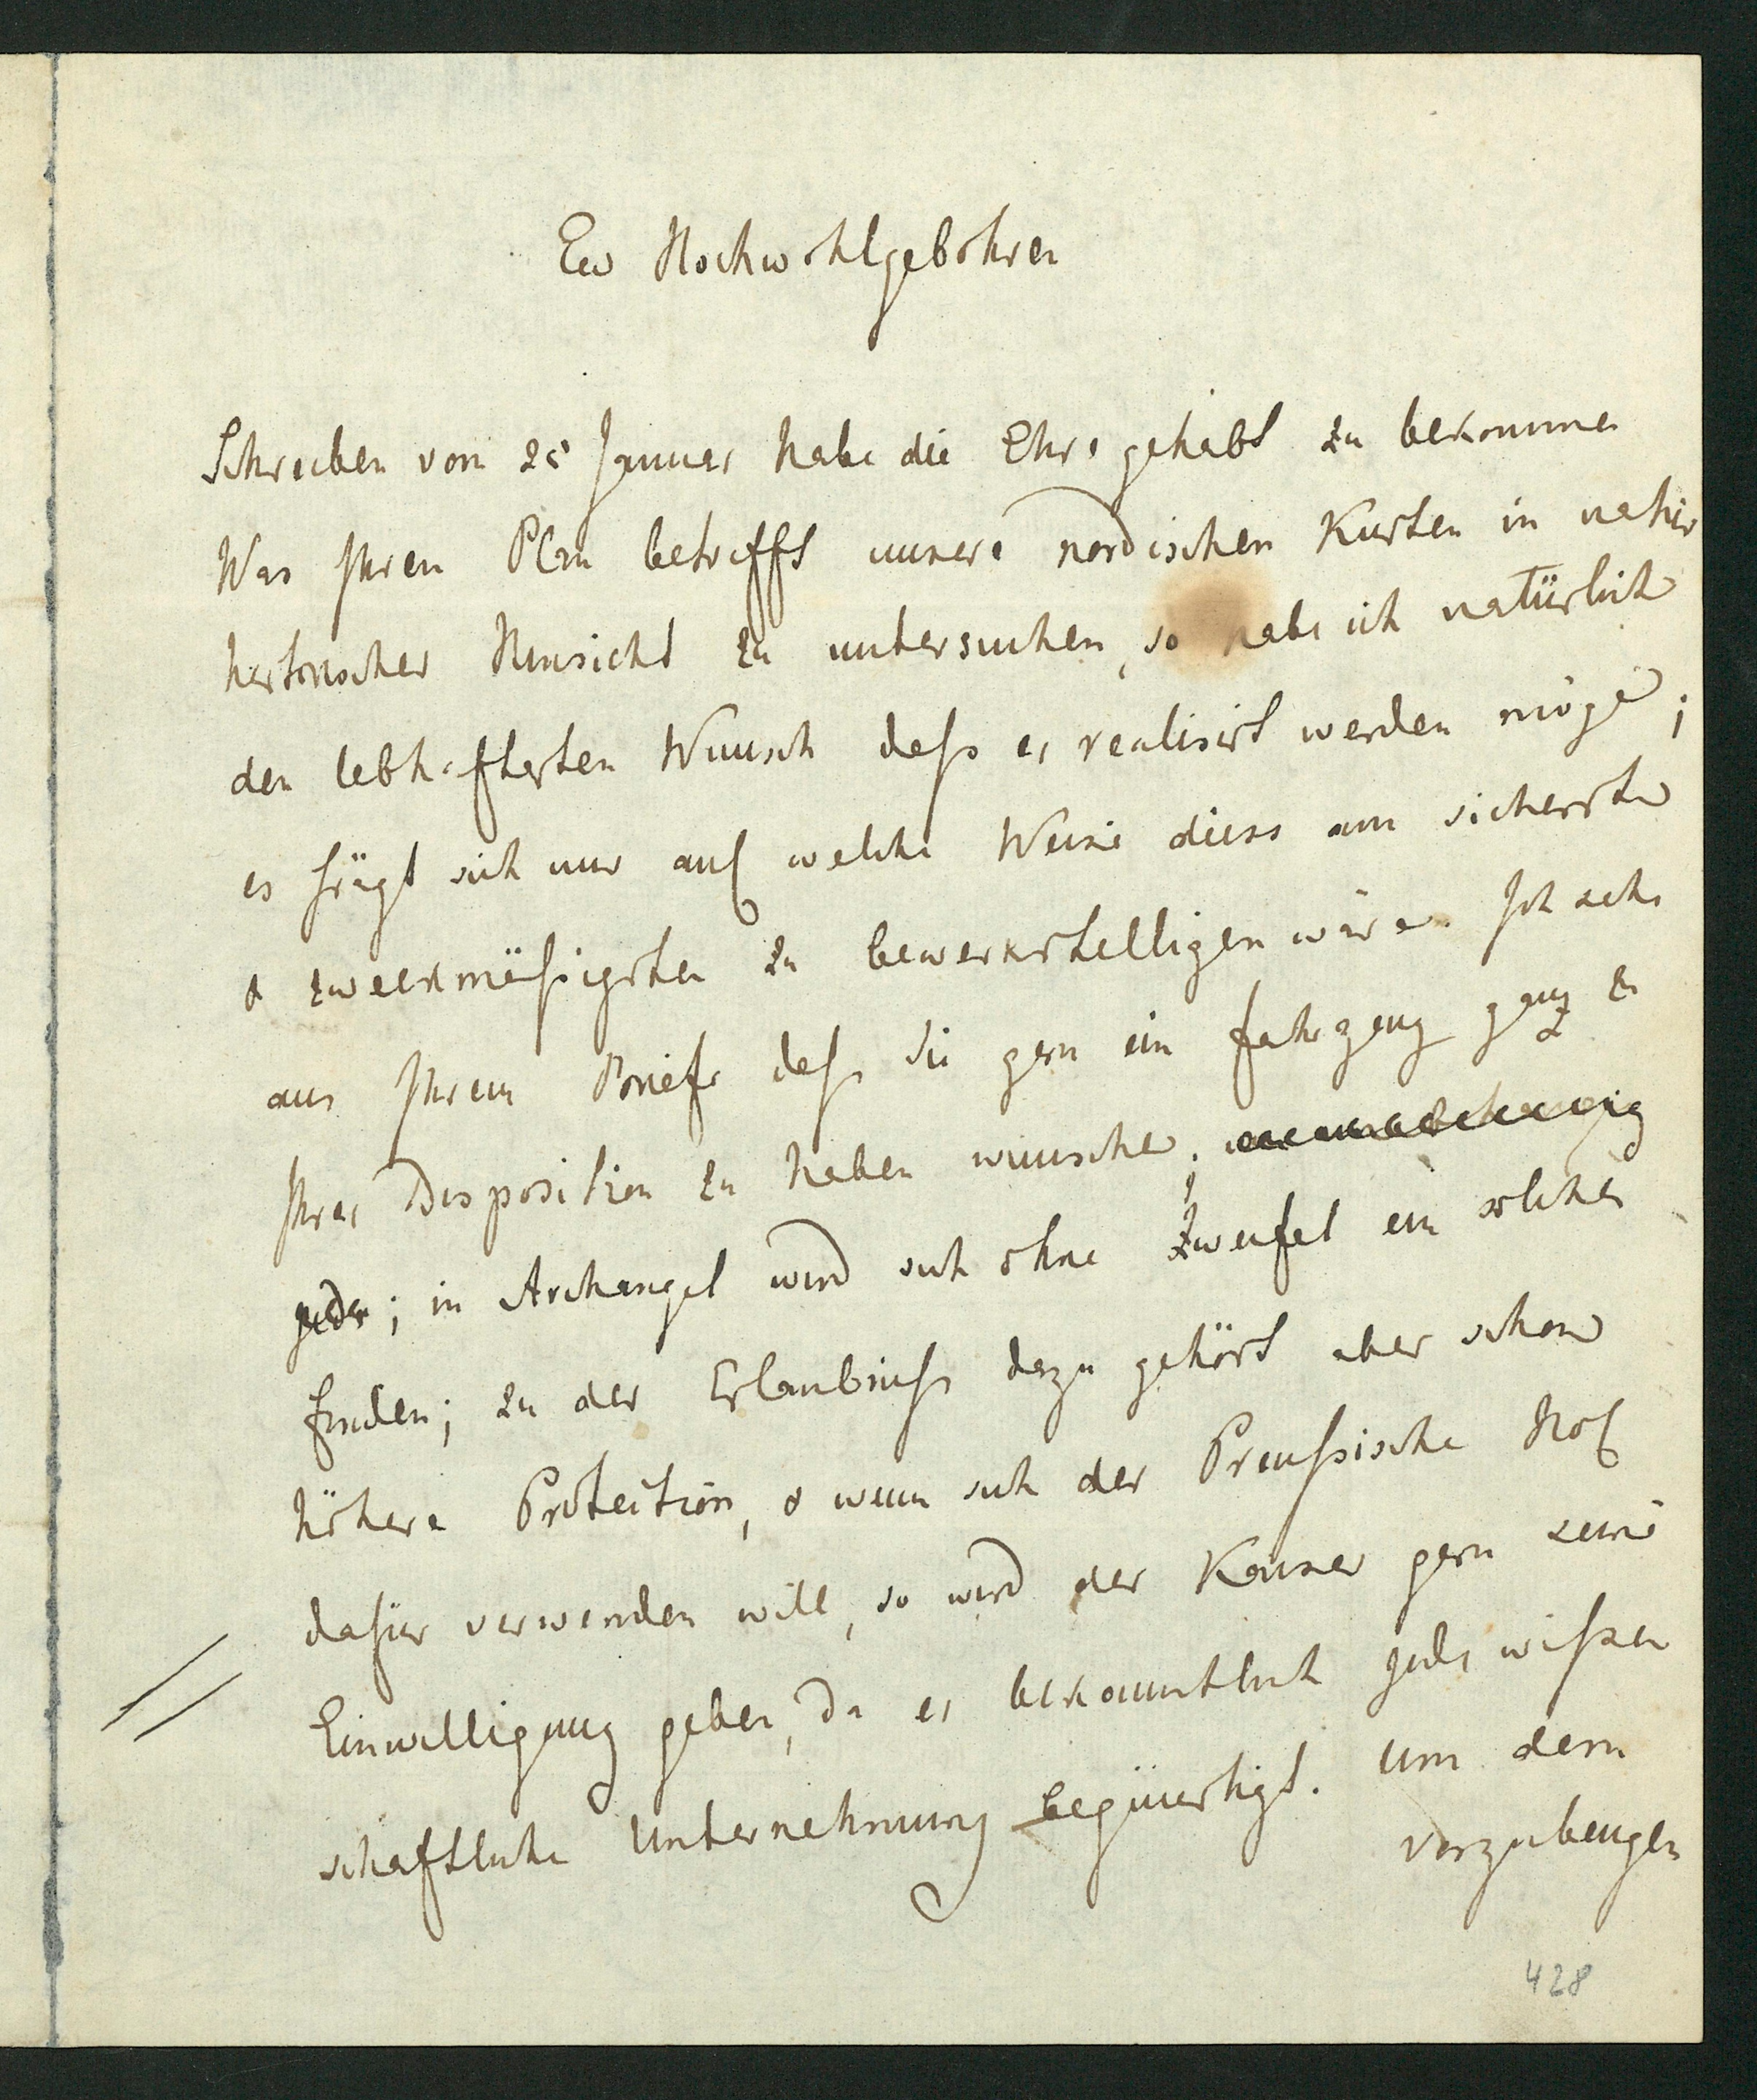 Ew Hochwohlgebohren
Schreiben von 25 Januar habe die Ehre gehabt zu bekommen
Was Ihren Plan betrifft unsere nordischen Küsten in natur
historischer Hinsicht zu untersuchen, so habe ich natürlich
den lebhaftesten Wunsch daſs er realisirt werden möge;
es frägt sich nur auf welche Weise diess am sichersten
& zweckmäſsigsten zu bewerkstelligen wäre. Ich sehe
aus Ihrem Briefe daſs Sie gern ein Fahrzeug ganz zu
Ihrer Disposition zu haben wünschen;
; in Archangel wird sich ohne Zweifel ein solches
finden; zu der Erlaubniſs dazu gehört aber schon
höhere Protection, & wenn sich der Preuſsische Hof
dafür verwenden will, so wird der Kaiser gern seine
Einwilligung geben, da er bekanntlich jede wiſsen
schaftliche Unternehmung begünstigt. Um dem
vorzubeugen
428